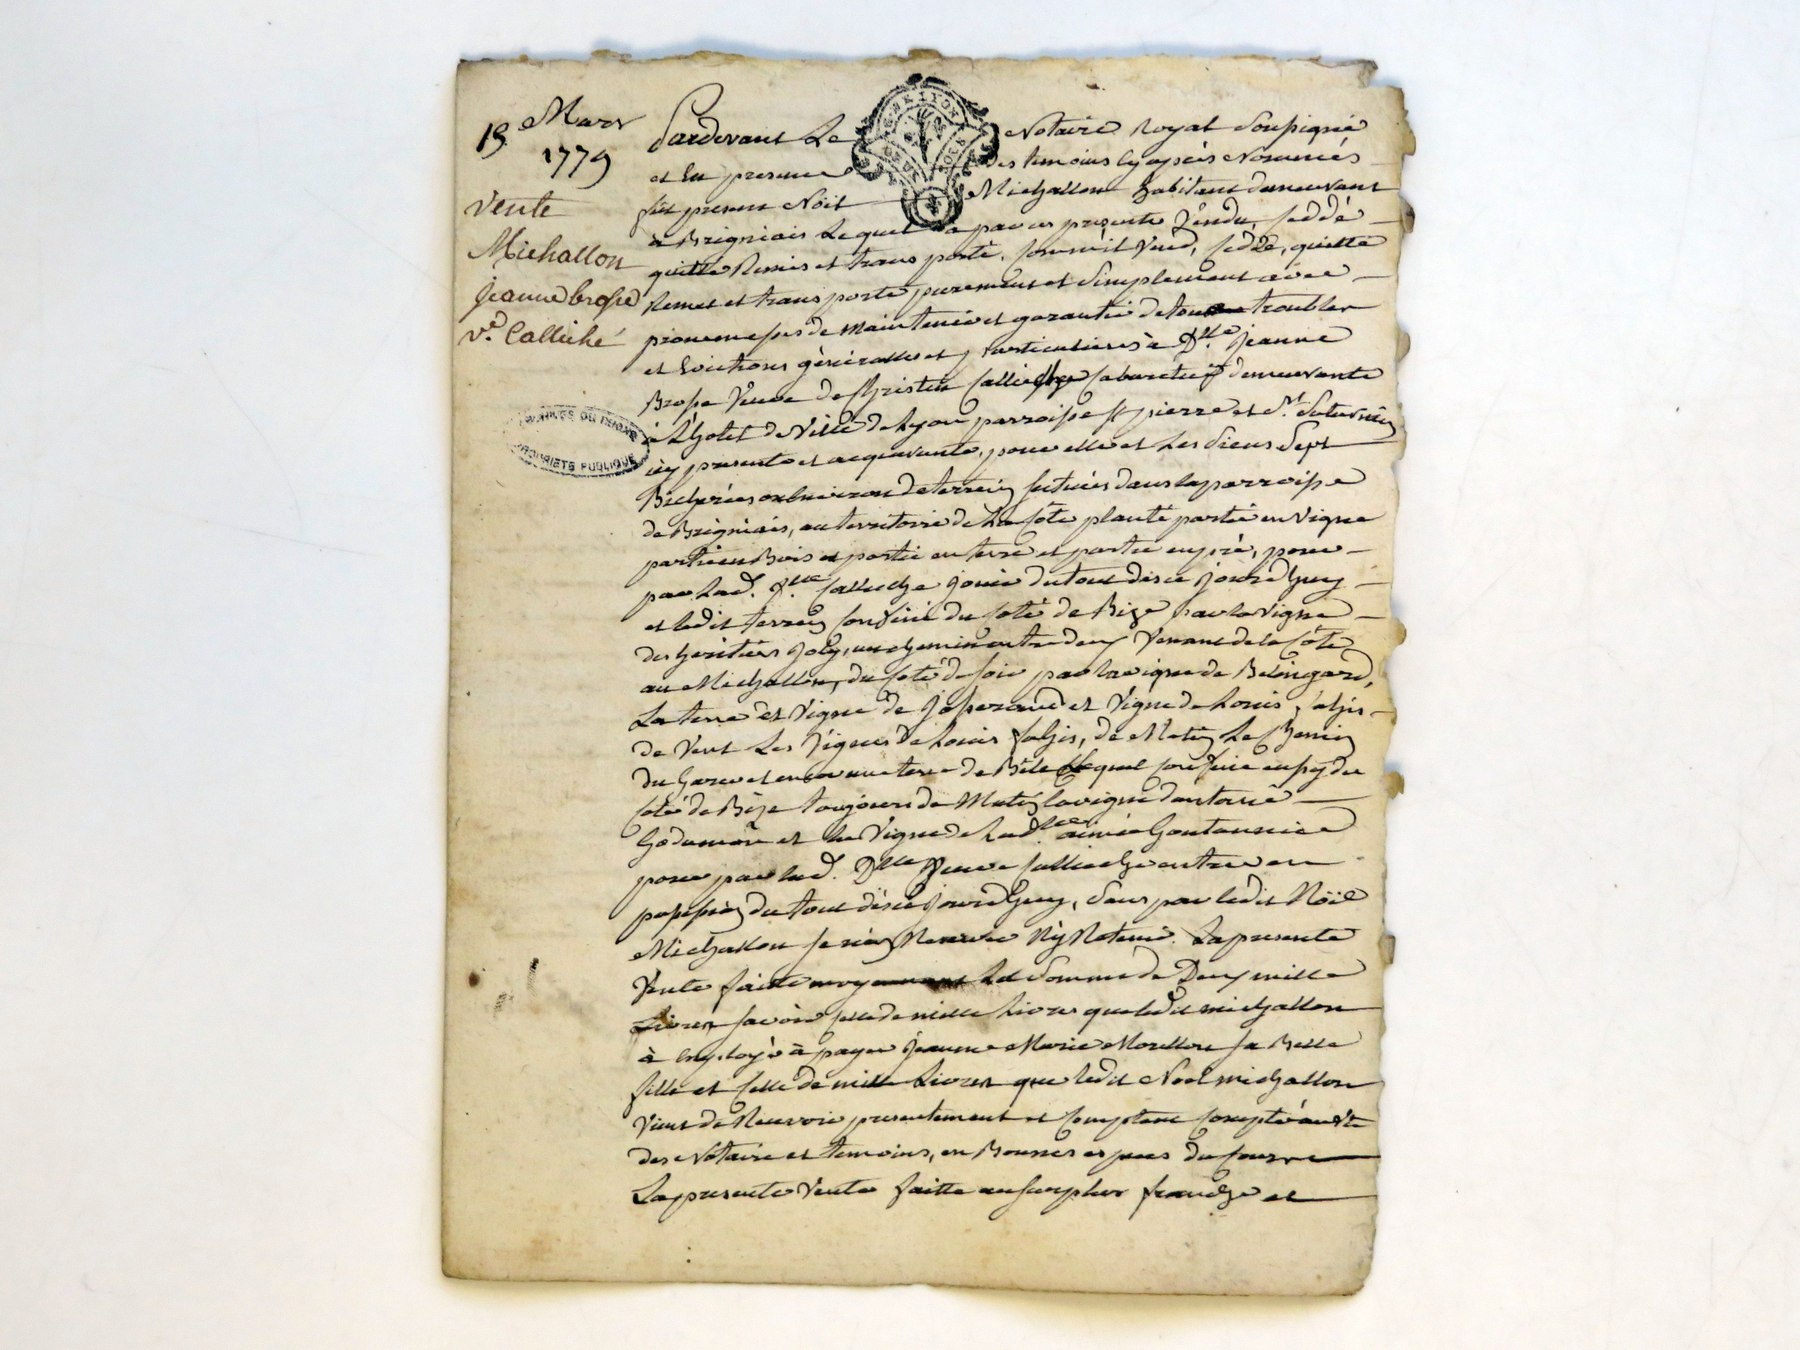 19 Mars
1779
Vente
Michallon
Jeanne brosse
Ve. Calliché
ARCHIVES DU RHONE
PROPRIETE PUBLIQUE
GEN. LYON
Pardevant Le Notaire Royal Soussigné
et En presence des temoins cy après Nommés
fut present Noël Michallon habitant demeurant
à Brigniais Lequel a par ces presente Vendu, Ceddé
quitté Remis et transporté, comme il Vend, Cedde, quitte
Remet et transporte purement et Simplement avec
promesses de maintenir et garantir de tous troubles
et Evictions généralles et particulieres à Dlle. Jeanne
Brosse Veuve de Christin Calliche Cabaretier demeurante
à L'hotel de Ville de Lyon parroisse St pierre et St. Saturnin
icy presente et acquerante, pour elle et Les Siens Sept
Bicherées ou Environ de terrein situés dans la parroisse
de Brigniais, au territoire de La Côte planté partie en Vigne
partie en Bois et partie en terre et partie en pré, pour
par Lad. Dlle Calliche jouir du tout dès ce jourd'huy
et ledit terrein Confiné du Coté de Bize par la Vigne
des heritiers Joly, un chemin entre deux Venant de la Côte
au Michallon, du Coté de soir par la vigne de Belingard,
La terre et Vigne de Josserand et Vigne de Louis
de Vent Les Vignes de Louis de Matin Le Chemin
du Garet et encor une terre de Bele Lequel Confine aussy du
Coté de Bize toujours de Matin la vigne d'antoine
et La Vigne de Lad. Dlle aimée
pour par lad. Dlle Veuve Calliche entrer en
possession du tout dès ce jourd'huy, Sans par ledit Noël
Michallon se rien Reserver Ny Retenir. La presente
Vente faitte moyennant La Somme de Deux mille
Livres savoir celle de mille Livres que ledit michallon
à Employé à payer Jeanne Marie Morellon sa Belle
fille et Celle de mille Livres que ledit Noel michallon
Vient de Recevoir presentement et Comptant Compté à vüe
des Notaire et temoins, en Bonnes especes du Cours
La presente Vente faitte au surplus franche et